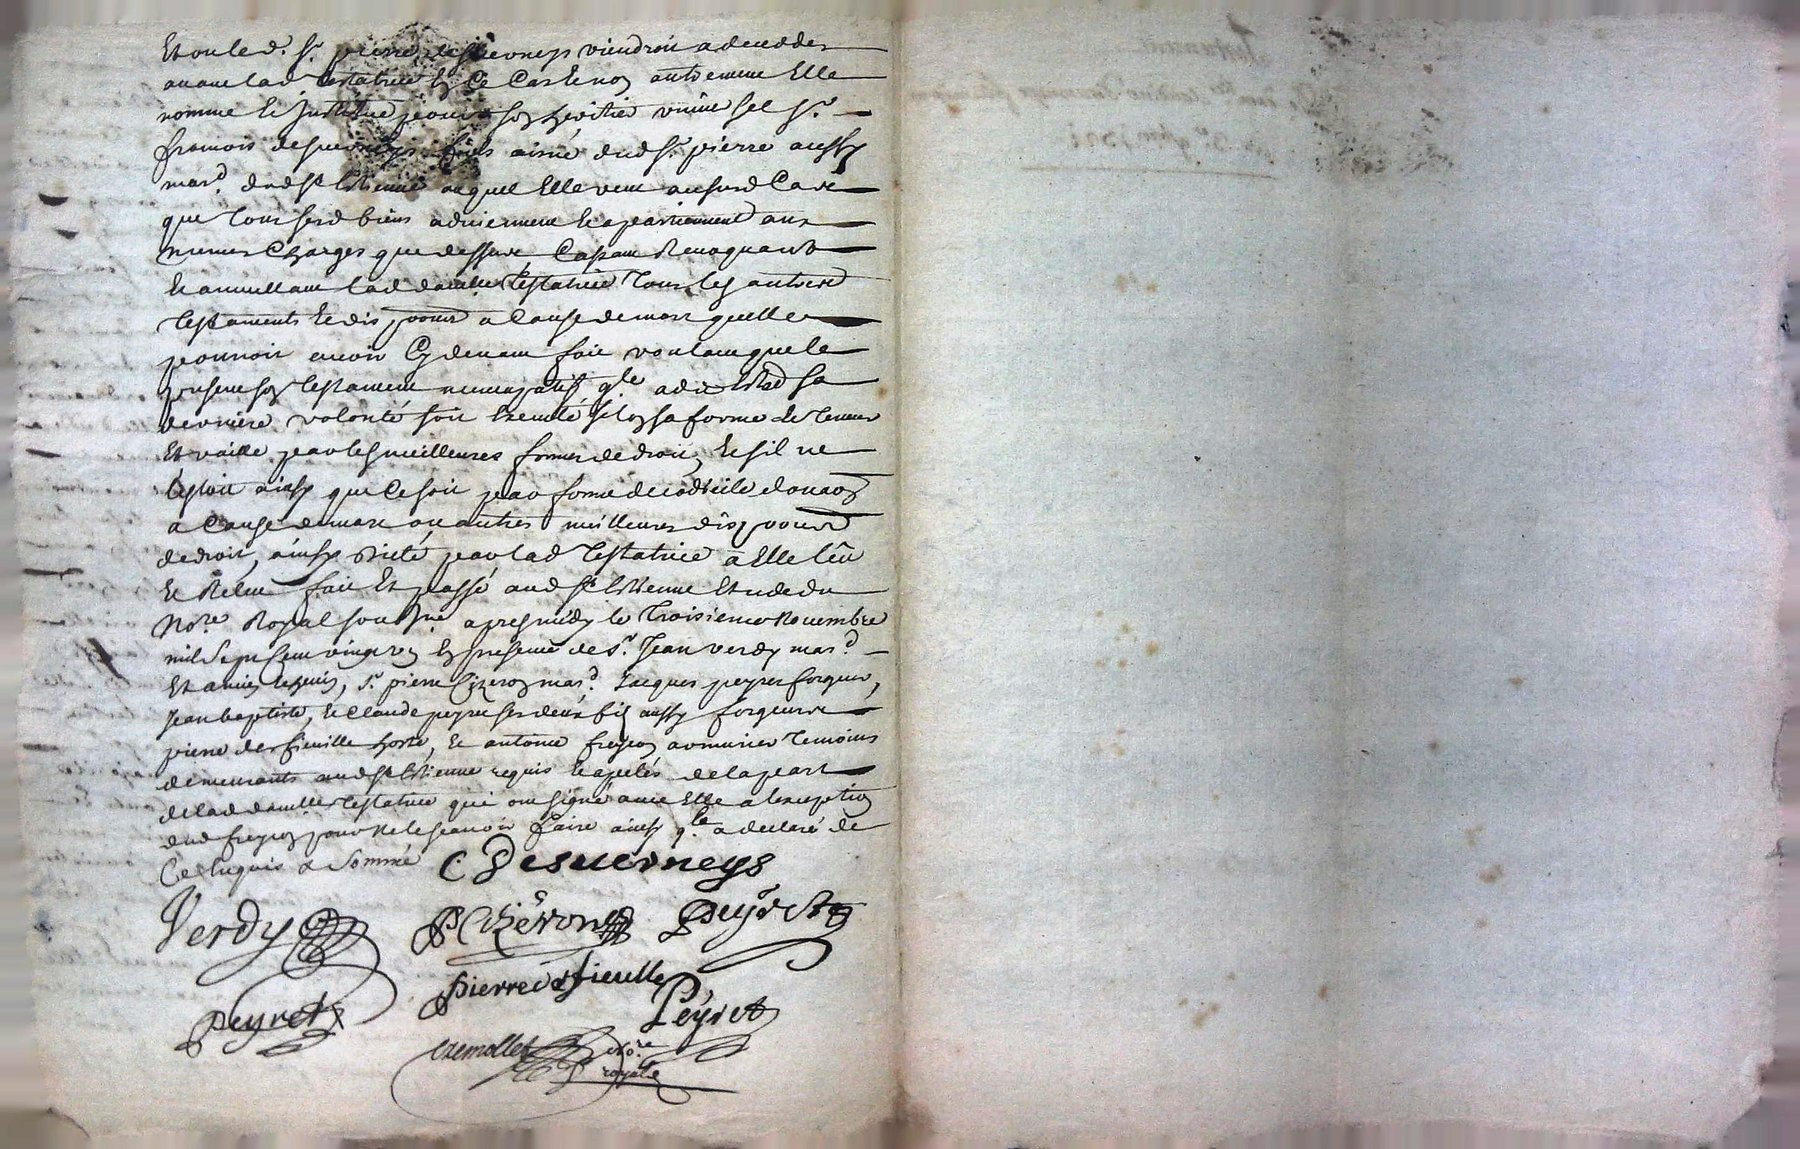 Et ou led. Sr. pierre desverneys viendroit a deceder
avant lad. testatrice En Ce Cas Et non autrement Elle
nomme Et Institue pour son heritier univer sel Sr.
francois desverneys fils aisné dud Sr. pierre aussy
mard. dud St Etienne auquel Elle veut aud Cas
que tous sesd biens adviennent Et apartiennent aux
mesmes Charges que dessus, Cassant Revoquant
Et annullant lad damlle testatrice Tous les autres
Testaments Et dispoons a Cause de mort quelle
pourroit avoir Cy devant fait voulant que le
present son testament nuncupatif qle a dit Estre sa
derniere volonté soit Executé selon sa forme Et teneur
Et vaille par les meilleures formes de droit, Et sil ne
valoit ainsy que Ce soit par forme de codicile donaon
a Cause de mort ou autres meilleures dispoons
de droit, ainsy dicté par lad Testatrice a Elle leu
Et Releu fait Et passé aud St Etienne Etude du
Nore Royal sousigné apres midy le Troisieme Novembre
mil Sept Cent vingt un En presence de Sr. Jean verdy mard.
Sr. pierre Chezeron mard. Jacques peyret forgeur,
Jean baptiste, Et Claude peyret ses deux fils aussy forgeurs
pierre desfieulle hoste, Et antoine freycon armurier temoins
demeurants aud St Etienne requis Et apelés de la part
de lad damlle testatrice qui ont signé avec Elle a lexception
dud freycon pour ne le scavoir faire ainsy qle a declaré de
Ce Enquis et sommé
C Desverneys
Verdy
P Chezeron
Peyret
pierre desfieulle
Peyret
Peyret
Nore
royal